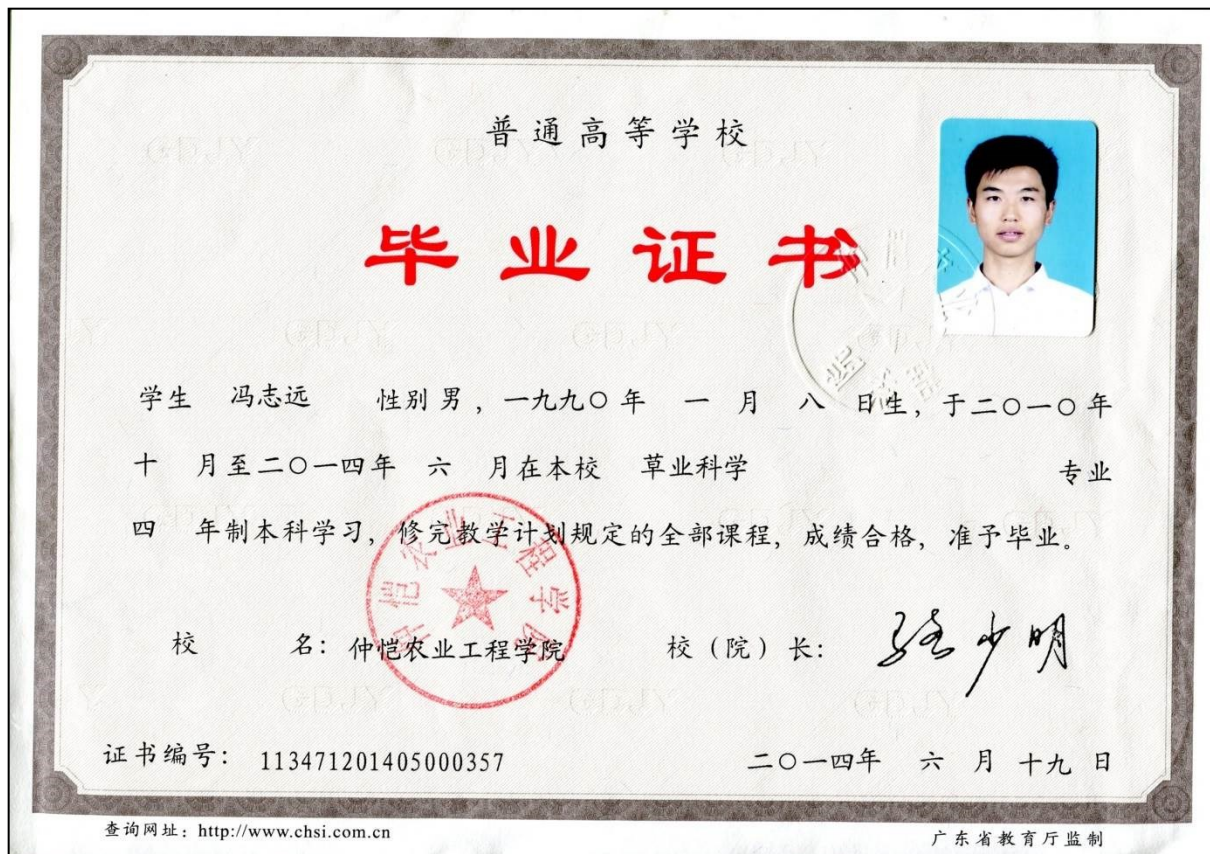 普通高等学校
毕业证书
学生 冯志远 性别 男，一九九〇年 一 月 八 日生，于二〇一〇年
十 月至二〇一四年 六 月在本校 草业科学 专业
四 年制本科学习，修完教学计划规定的全部课程，成绩合格，准予毕业。
仲恺农业工程学院
校 名：仲恺农业工程学院 校（院）长：骆少明
证书编号：113471201405000357 二〇一四年 六 月 十九 日
查询网址：http://www.chsi.com.cn 广东省教育厅监制